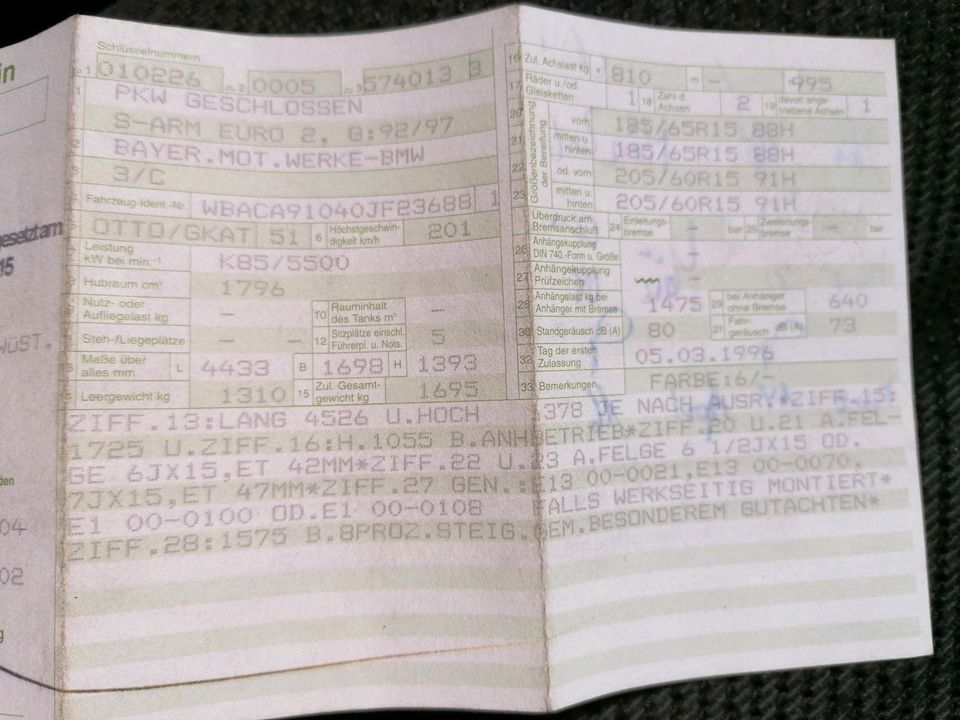 in
gesetzt am
15
WÜST.
04
02
Schlüsselnummern
zu 1 010226 zu 2 0005 zu 3 574013 3
1 PKW GESCHLOSSEN
S-ARM EURO 2, G:92/97
2 BAYER.MOT.WERKE-BMW
3 3/C
4 Fahrzeug-Ident.-Nr. WBACA91040JF23688 1
5 OTTO/GKAT 51 6 Höchstgeschwin-digkeit km/h 201
7 Leistung kW bei min.-¹ K85/5500
8 Hubraum cm³ 1796
9 Nutz- oder Aufliegelast kg – 10 Rauminhalt des Tanks m³ –
11 Steh-/Liegeplätze – – 12 Sitzplätze einschl. Führerpl. u. Nots. 5
13 Maße über alles mm L 4433 B 1698 H 1393
14 Leergewicht kg 1310 15 Zul. Gesamt-gewicht kg 1695
16 Zul. Achslast kg v 810 m – 995
17 Räder u./od. Gleisketten 1 18 Zahl d. Achsen 2 19 davon ange-triebene Achsen 1
Größenbezeichnung der Bereifung
20 vorn 185/65R15 88H
21 mitten u. hinten 185/65R15 88H
22 od. vorn 205/60R15 91H
23 mitten u. hinten 205/60R15 91H
Überdruck am Bremsanschluß 24 Einleitungs-bremse – bar 25 Zweileitungs-bremse – bar
26 Anhängekupplung DIN 740.-Form u. Größe –
27 Anhängekupplung Prüfzeichen –
28 Anhängelast kg bei Anhänger mit Bremse 1475 29 bei Anhänger ohne Bremse 640
30 Standgeräusch dB (A) 80 31 Fahr-geräusch dB (A) 73
32 Tag der ersten Zulassung 05.03.1996
33 Bemerkungen FARBE:6/–
ZIFF.13:LANG 4526 U.HOCH 1378 JE NACH AUSR.*ZIFF.15:
1725 U.ZIFF.16:H.1055 B.ANHBETRIEB*ZIFF.20 U.21 A.FEL-
GE 6JX15,ET 42MM*ZIFF.22 U.23 A.FELGE 6 1/2JX15 OD.
7JX15,ET 47MM*ZIFF.27 GEN.:E13 00-0021,E13 00-0070,
E1 00-0100 OD.E1 00-0108 FALLS WERKSEITIG MONTIERT*
ZIFF.28:1575 B.8PROZ.STEIG.GEM.BESONDEREM GUTACHTEN*